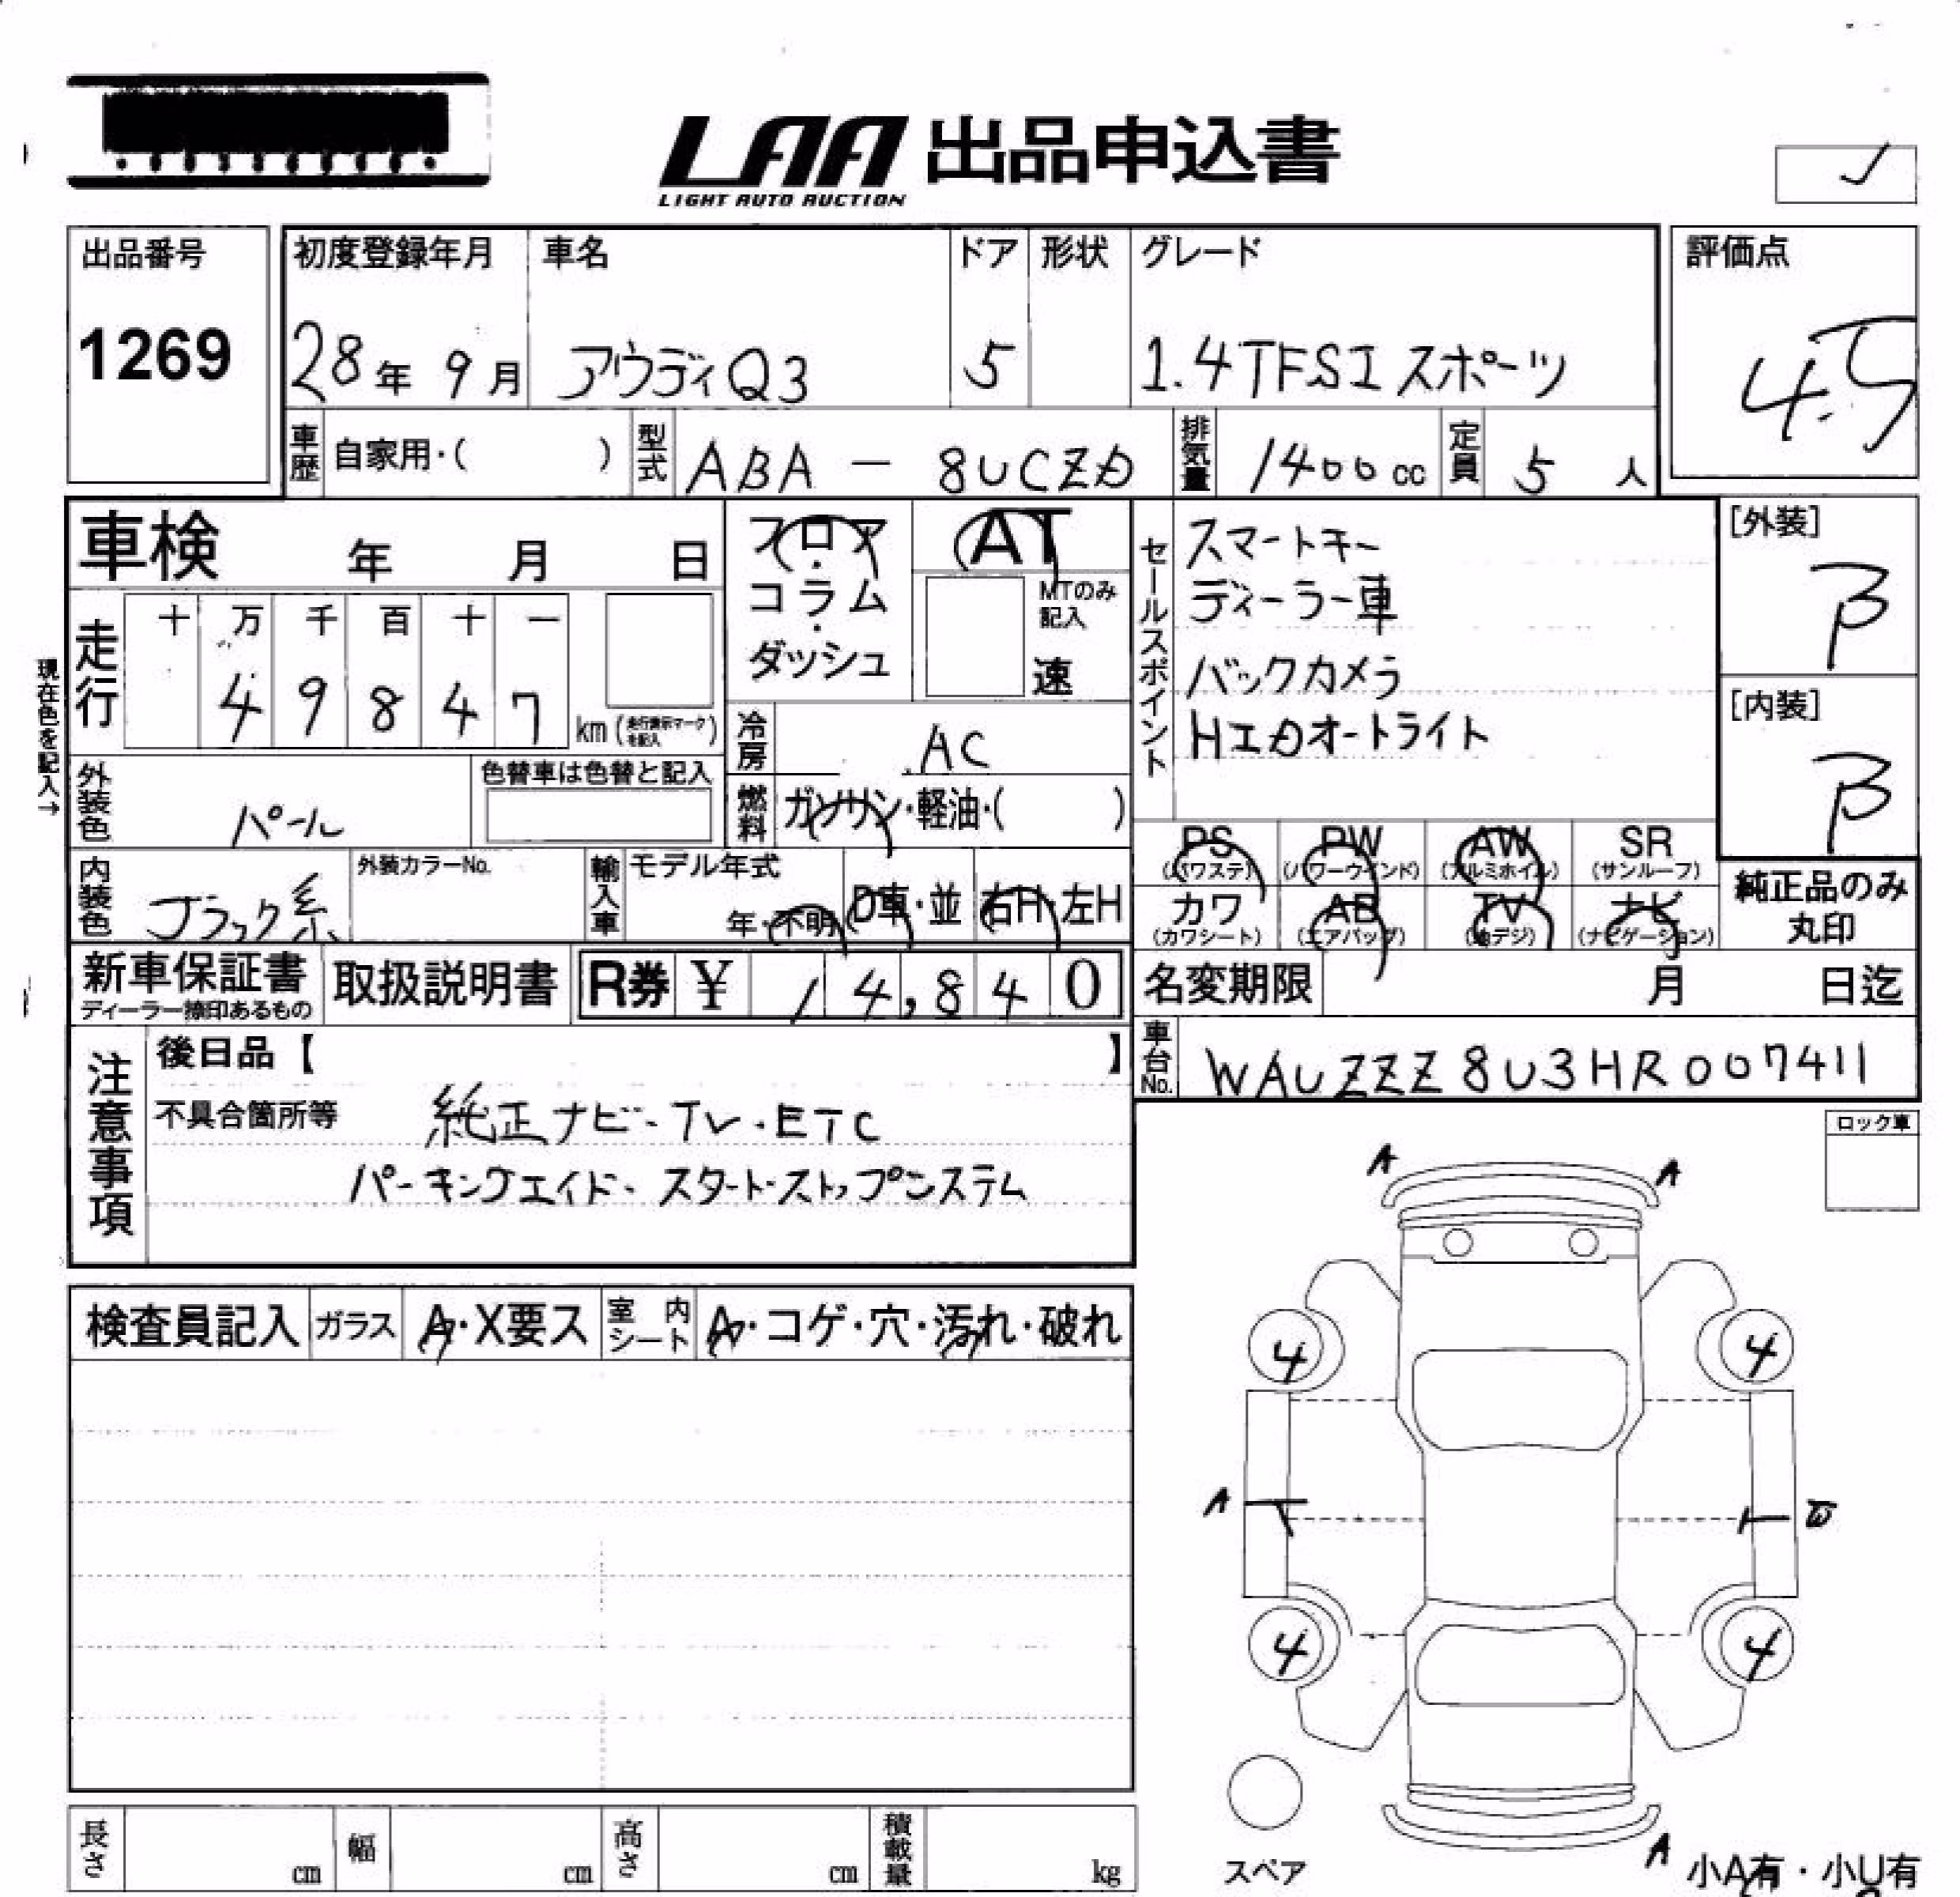 LAA 出品申込書
LIGHT AUTO AUCTION
出品番号 初度登録年月 車名 ドア 形状 グレード 評価点
1269 28年 9月 アウディQ3 5 1.4TFSI スポーツ 4.5
車歴 自家用・( ) 型式 ABA - 8UCZD 排気量 1400cc 定員 5 人
車検 年 月 日 フロア・コラム・ダッシュ AT
MTのみ記入 速
セールスポイント スマートキー
ディーラー車
バックカメラ
HIDオートライト
[外装] B
[内装] B
現在色を記入→
走行 十 万 千 百 十 一
4 9 8 4 7 km (走行表示マークを記入)
冷房 AC
外装色 パール 色替車は色替と記入 燃料 ガソリン・軽油・( )
PS (パワステ) PW (パワーウインド) AW (アルミホイル) SR (サンルーフ)
カワ (カワシート) AB (エアバッグ) TV (地デジ) ナビ (ナビゲーション)
純正品のみ丸印
内装色 ブラック系 外装カラーNo. 輸入車 モデル年式 年・不明 D車・並 右H・左H
新車保証書 ディーラー捺印あるもの 取扱説明書 R券 ¥ 14,840 名変期限 月 日迄
車台No. WAUZZZ8U3HR007411
注意事項 後日品【 】
不具合箇所等 純正ナビ・TV・ETC
パーキングエイド・スタートストップシステム
ロック車
A A
検査員記入 ガラス A・X要ス 室内シート A・コゲ・穴・汚れ・破れ
4 4
A W
4 4
長さ cm 幅 cm 高さ cm 積載量 kg
スペア A 小A有・小U有